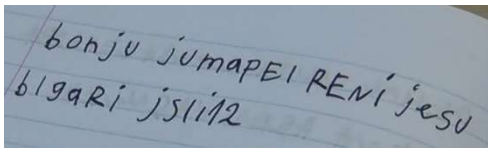 bonju jumapEI RENi jesu
blgaRi jsli12